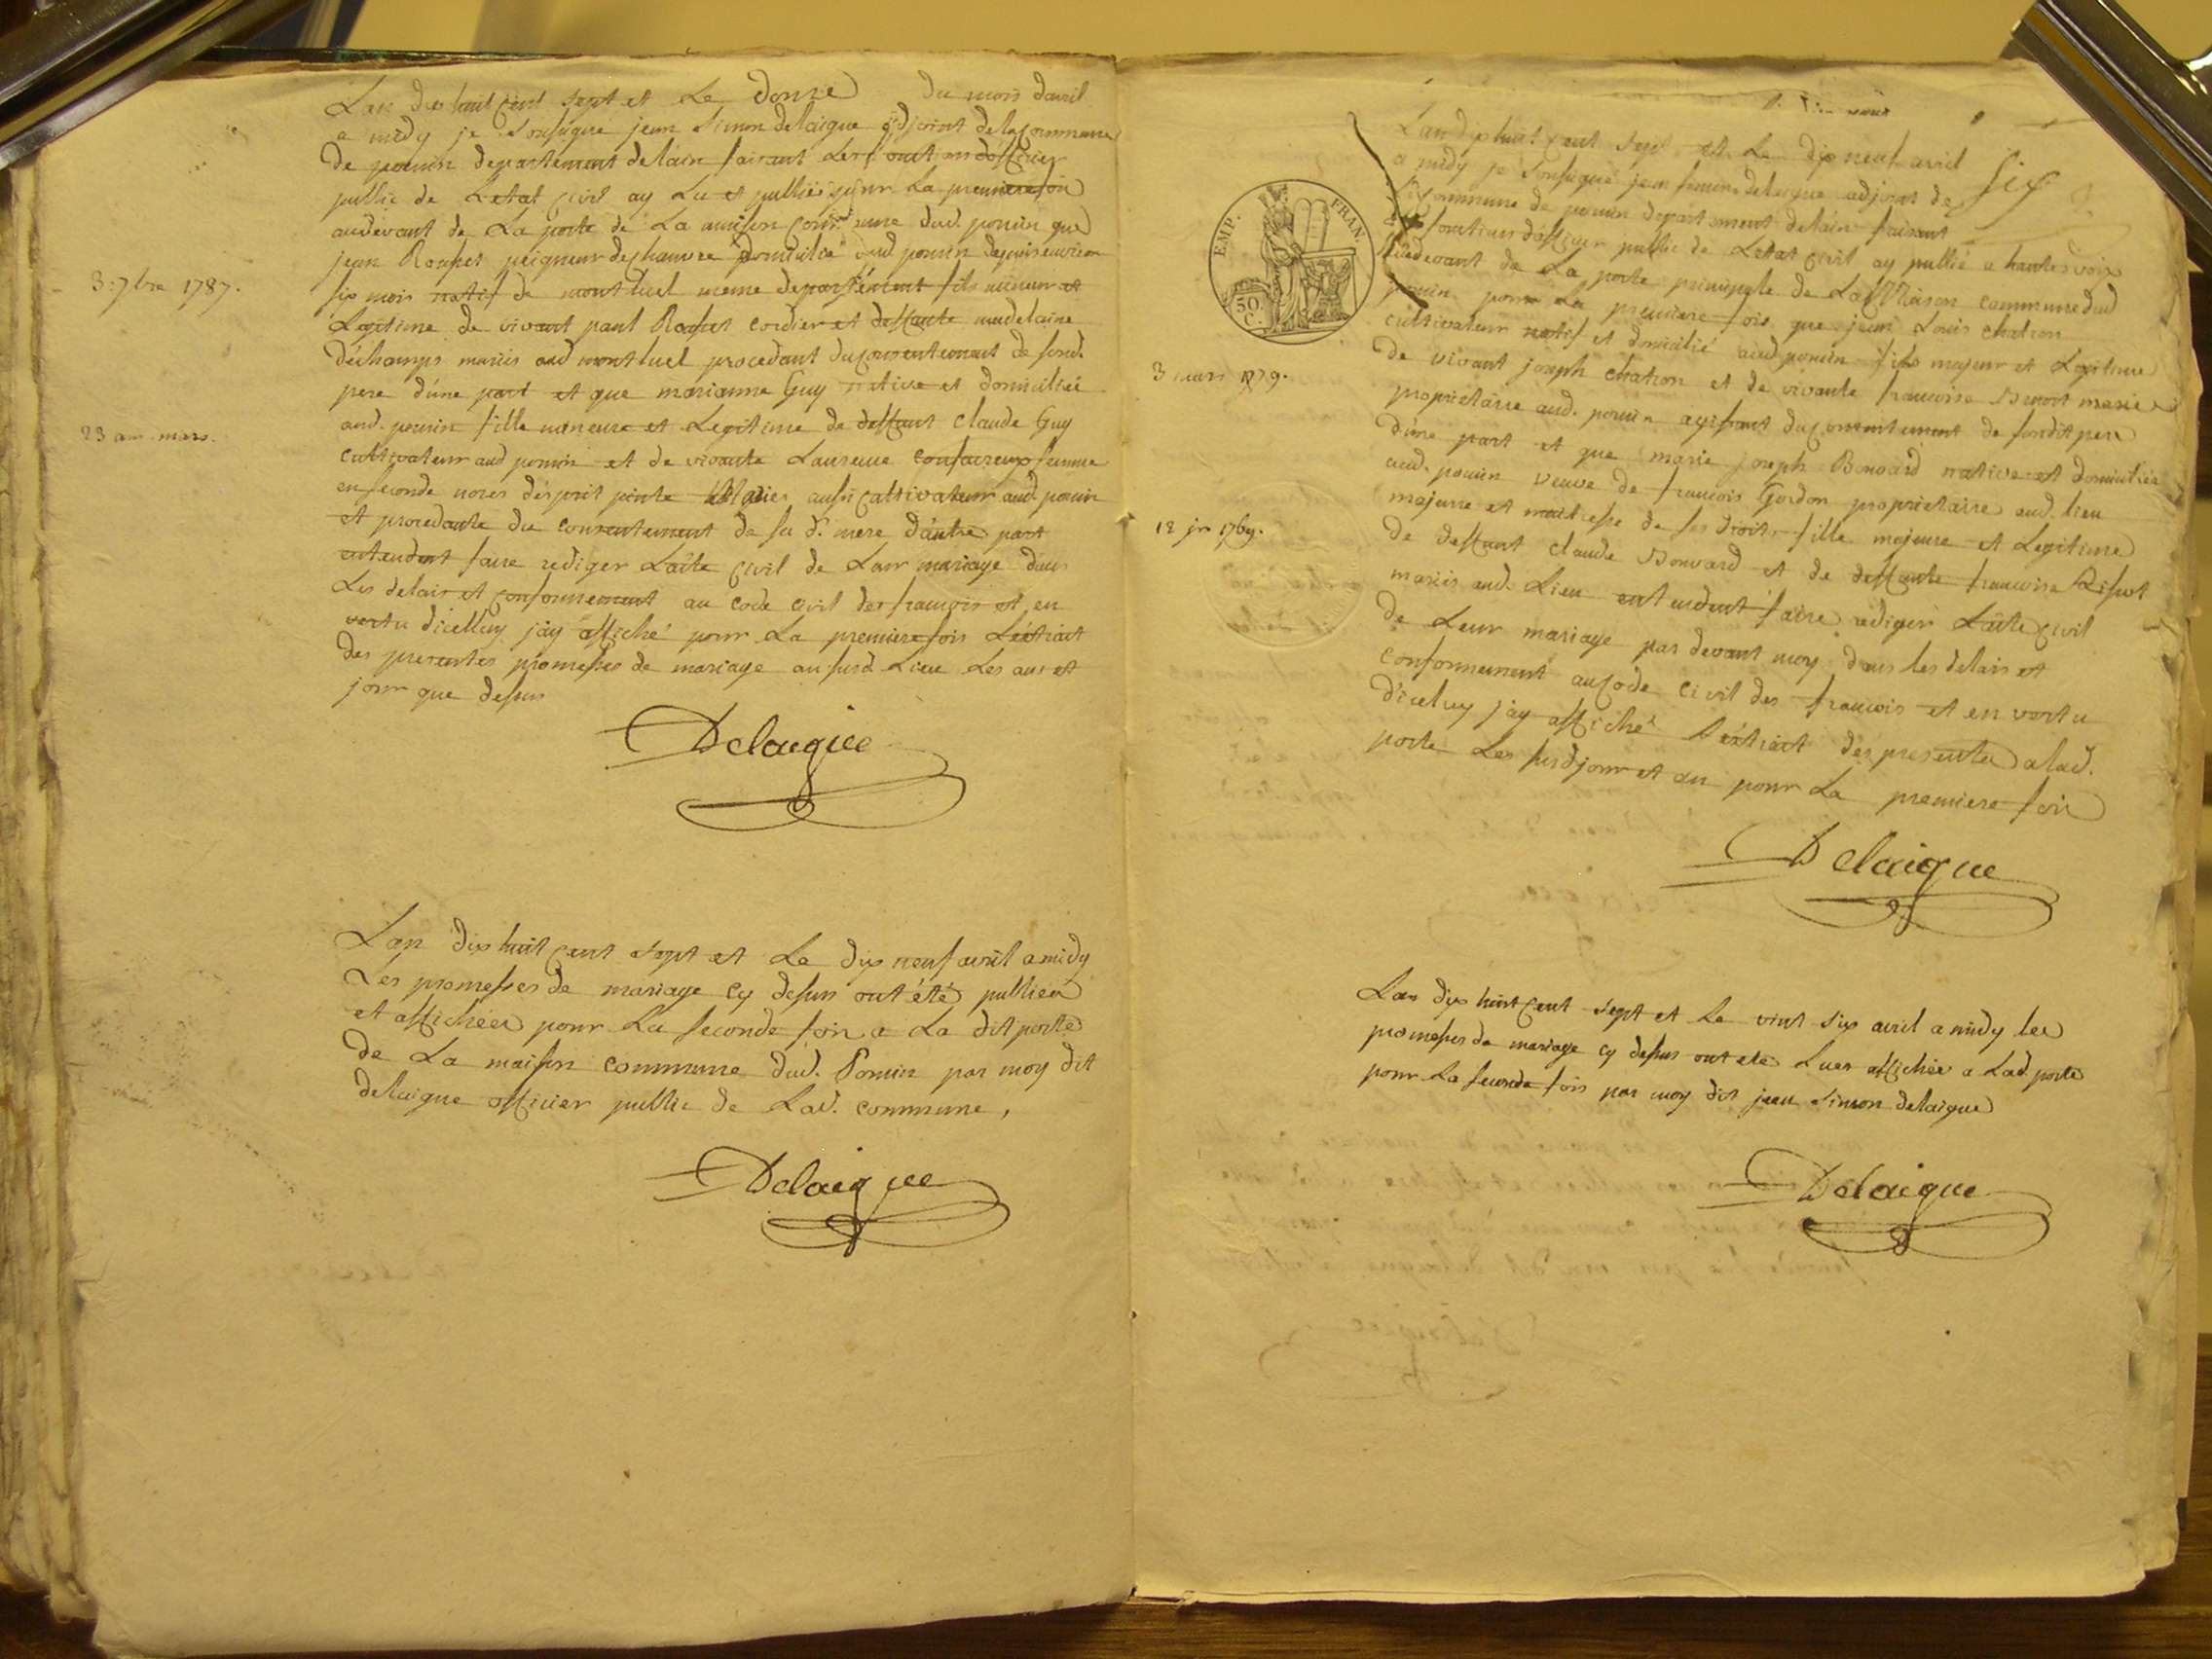 Lan dix huit cent sept et le douze du mois davril
a midy je soussigné jean simon delaigue adjoint de la commune
de pouin departement delain faisant les fonctions dofficier
public de Letat civil ay lu et publiée pour la premiere fois
audevant de La porte de La maison commune dud. pouin que
jean peigneur de chanvre domicilié aud pouin depuis environ
six mois natif de montluel meme departement fils mineur et
Legitime de vivant paul cordier et deffante madelaine
déchamps mariés aud montluel procedant du consentement de sond.
pere d'une part et que marianne Guy native et domiciliée
aud. pouin fille mineure et Legitime de deffant claude Guy
cultivateur aud pouin et de vivante Laurence femme
en seconde noces aussi cultivateur aud pouin
et procedante du consentement de sa d. mere d'autre part
entendent faire rediger Laite civil de Leur mariage dans
Les delais et conformement au code civil des françois et en
vertu dicelluy jay affiché pour La premiere fois Léxtrait
des presentes promesses de mariage au susd. Lieu Les an et
jour que dessus
Delaigue
3. 7bre 1787.
23 mars.
Lan dix huit cent sept et Le dix neuf avril a midy
Les promesses de mariage cy dessus ont été publiéé
et affichéés pour La seconde fois a La dit porte
de La maison commune dud. Pouin par moy dit
delaigue officier public de Lad. commune,
Delaigue
six
Lan dix huit cent sept et Le dix neuf avril
a midy je soussigné jean simon delaigue adjoint de
La commune de pouin departement delain faisant
Les fonctions d'officier public de Letat civil ay publié a hautes voix
audevant de La porte principale de La Maison commune dud
pouin pour La premiere fois que jean Louis chatron
cultivateur natif et domicilié aud pouin fils majeur et Legitime
de vivant joseph chatron et de vivante francoise Benoit mariés
propriétaire aud. pouin agissant du consentement de sondit pere
d'une part et que marie joseph Bonvard native et domiciliée
aud. pouin veuve de francois Gordon propriétaire aud. lieu
majeure et maitresse de ses droits, fille majeure et Legitime
de deffant claude Bonvard et de deffante francoise
mariés aud. Lieu entendent faire rediger Laite civil
de Leur mariage par devant moy dans les delais et
conformement au code civil des francois et en vertu
d'iceluy jay affiché l'éxtrait des presentes a lad.
porte Les susd jour et an pour La premiere fois
Delaigue
EMP. FRAN.
50 C.
3 mars 1779.
12 jer 1769.
Lan dix huit cent sept et Le vint six avril a midy les
promesses de mariage cy dessus ont été Lues affichée a Lad. porte
pour La seconde fois par moy dit jean simon delaigue
Delaigue